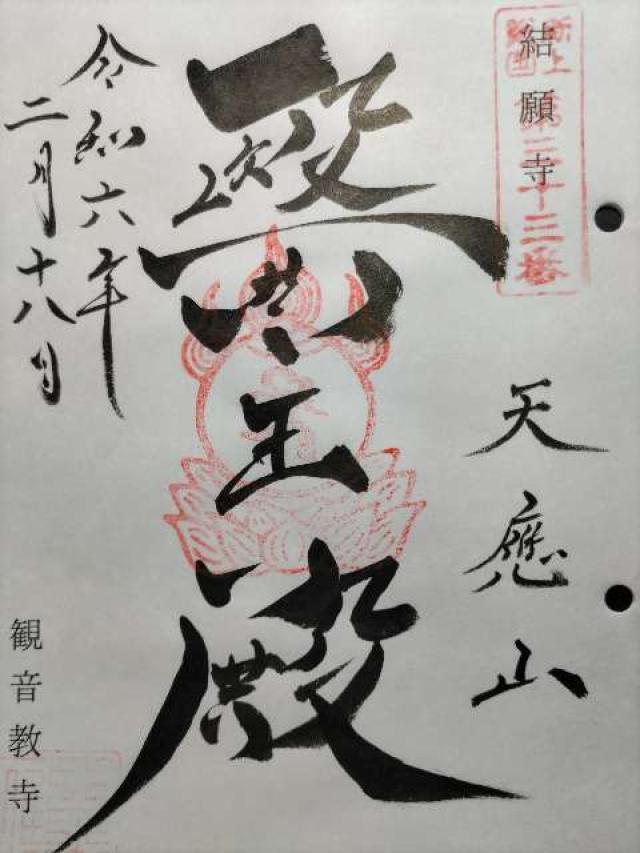 新上
総国
第三十三番
結願寺
天應山
王殿
令和六年
二月十八日
観音教寺